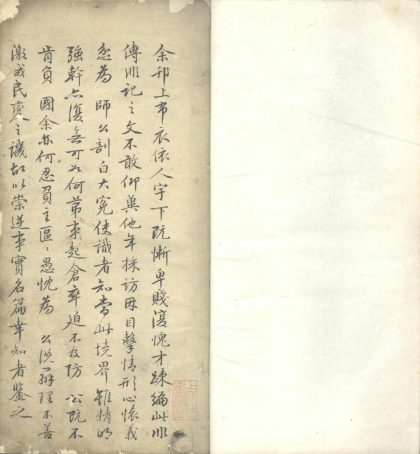 余邗上布衣依人宇下既慚卑賤復愧才疎編此非
傳非記之文不敢仰冀他年採訪因目擊情形心懷義
忿為 師公剖白大冤使識者知當此境界雖精明
強幹亦復無可如何第事起倉卒迫不及防 公既不
肯負 國余亦何忍負主區區愚忱為 公洗辦理不善
激成民變之譏故以崇逆事實名篇幸知者鑒之